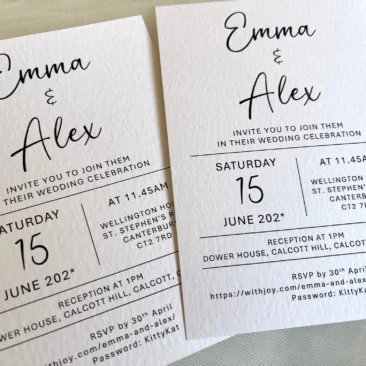 Emma
&
Alex
INVITE YOU TO JOIN THEM
THEIR WEDDING CELEBRATION
SATURDAY
15
JUNE 202*
AT 11.45AM
WELLINGTON HO
ST. STEPHEN'S R
CANTERBUR
CT2 7RD
RECEPTION AT 1PM
DOWER HOUSE, CALCOTT HILL, CALCOTT, C
RSVP by 30th April
https://withjoy.com/emma-and-alex/
Password: KittyKat
Emma
&
Alex
INVITE YOU TO JOIN THEM
IN THEIR WEDDING CELEBRATION
SATURDAY
15
JUNE 202*
AT 11.45AM
WELLINGTON HO
ST. STEPHEN'S
CANTERBUR
CT2 7RD
RECEPTION AT 1PM
DOWER HOUSE, CALCOTT HILL, CALCOT
RSVP by 30th April
https://withjoy.com/emma-and-alex/
Password: KittyKat